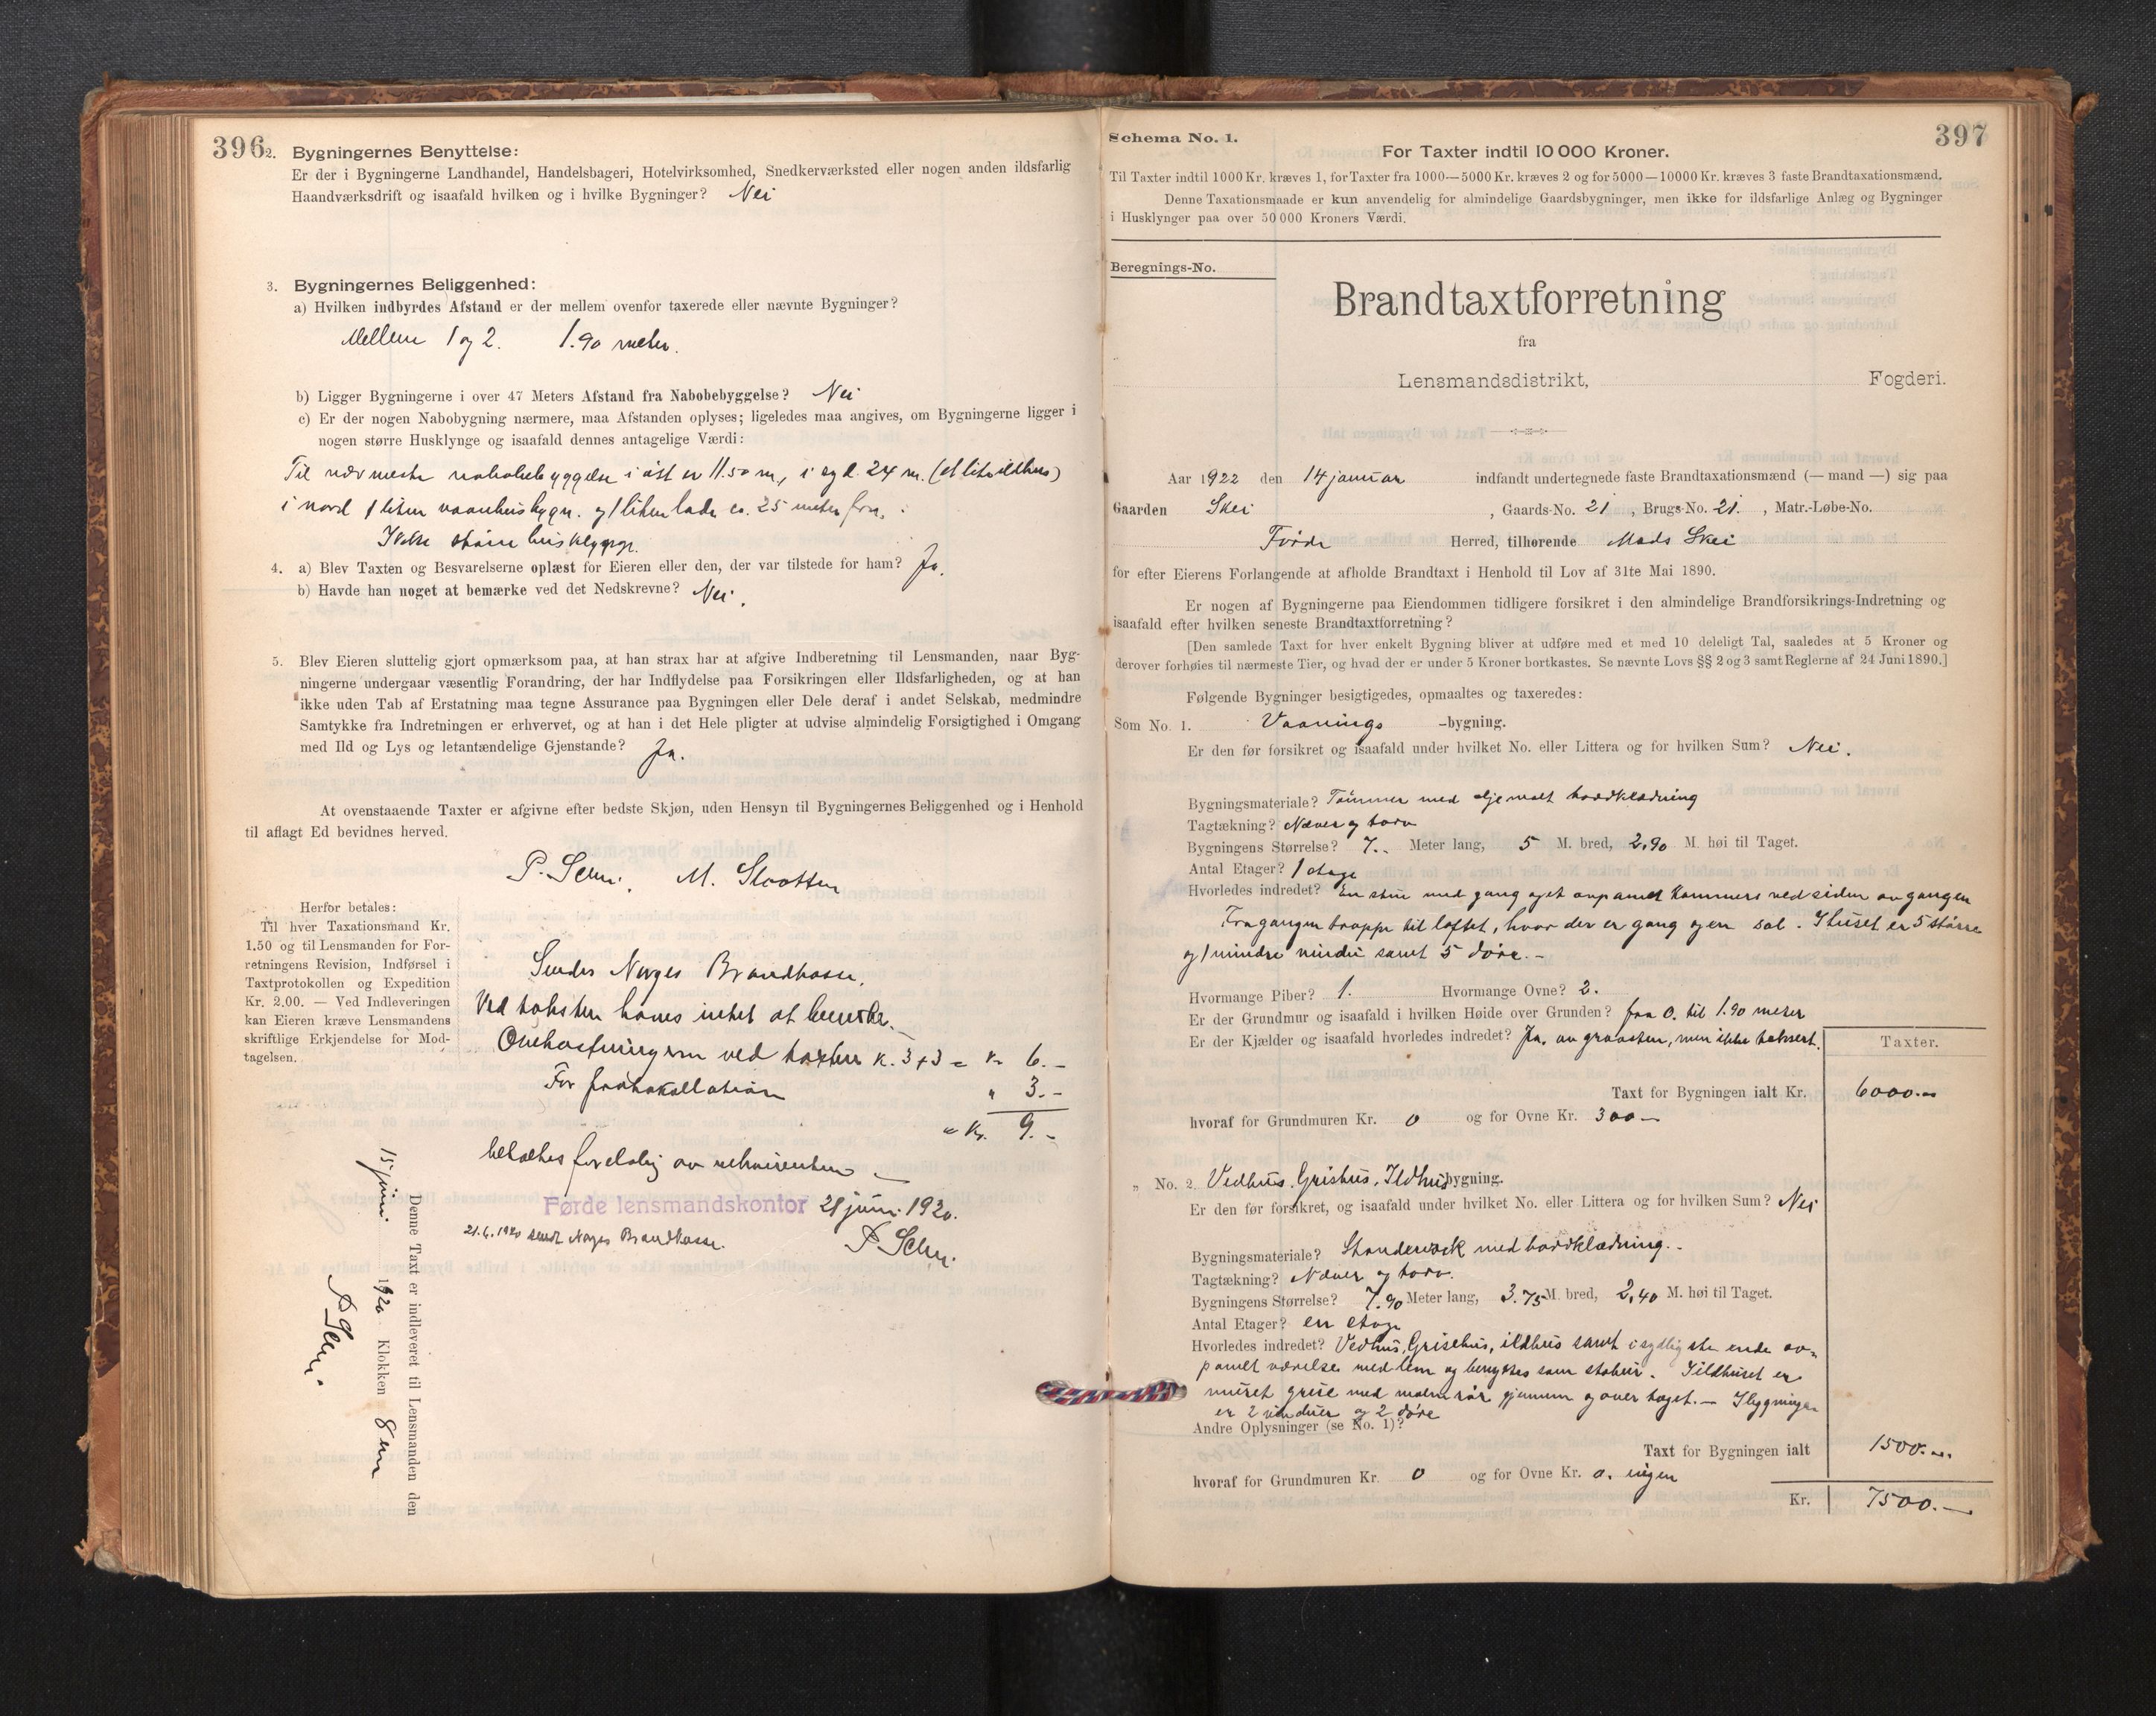 396
2. Bygningernes Benyttelse:
Er der i Bygningerne Landhandel, Handelsbageri, Hotelvirksomhed, Snedkerværksted eller nogen anden ildsfarlig
Haandværksdrift og isaafald hvilken og i hvilke Bygninger? Nei
3. Bygningernes Beliggenhed:
a) Hvilken indbyrdes Afstand er der mellem ovenfor taxerede eller nævnte Bygninger?
Mellem 1 og 2. 1.90 meter.
b) Ligger Bygningerne i over 47 Meters Afstand fra Nabobebyggelse? Nei
c) Er der nogen Nabobygning nærmere, maa Afstanden oplyses; ligeledes maa angives, om Bygningerne ligger i
nogen større Husklynge og isaafald dennes antagelige Værdi:
Til nærmeste nabobebyggelse i øst er 11.50 m., i syd 24 m. (et lite ildhus)
i nord 1 liten vaanhusbygn. og 1 liten lade ca. 25 meter fra.
Ikke større husklynge.
4. a) Blev Taxten og Besvarelserne oplæst for Eieren eller den, der var tilstede for ham? Ja.
b) Havde han noget at bemærke ved det Nedskrevne? Nei.
5. Blev Eieren sluttelig gjort opmærksom paa, at han strax har at afgive Indberetning til Lensmanden, naar Byg-
ningerne undergaar væsentlig Forandring, der har Indflydelse paa Forsikringen eller Ildsfarligheden, og at han
ikke uden Tab af Erstatning maa tegne Assurance paa Bygningen eller Dele deraf i andet Selskab, medmindre
Samtykke fra Indretningen er erhvervet, og at han i det Hele pligter at udvise almindelig Forsigtighed i Omgang
med Ild og Lys og letantændelige Gjenstande? Ja.
At ovenstaaende Taxter er afgivne efter bedste Skjøn, uden Hensyn til Bygningernes Beliggenhed og i Henhold
til aflagt Ed bevidnes herved.
P. M.
Herfor betales:
Til hver Taxationsmand Kr.
1.50 og til Lensmanden for For-
retningens Revision, Indførsel i
Taxtprotokollen og Expedition
Kr. 2.00. — Ved Indleveringen
kan Eieren kræve Lensmandens
skriftlige Erkjendelse for Mod-
tagelsen.
Sendes Norges Brandkasse.
Ved taksten haves intet at bemerke.
Omkostningerne ved taxten k. 3+3 = kr 6.-
For protokollation " 3.-
= Kr. 9.-
betaltes foreløbig av rekvirenten.
Førde lensmandskontor 21 juni 1920.
21.6.1920 sendt Norges Brandkasse.
Denne Taxt er indleveret til Lensmanden den
15 juni 1920 Klokken 8 em
Schema No. 1.
397
For Taxter indtil 10 000 Kroner.
Til Taxter indtil 1000 Kr. kræves 1, for Taxter fra 1000—5000 Kr. kræves 2 og for 5000—10000 Kr. kræves 3 faste Brandtaxationsmænd.
Denne Taxationsmaade er kun anvendelig for almindelige Gaardsbygninger, men ikke for ildsfarlige Anlæg og Bygninger
i Husklynger paa over 50 000 Kroners Værdi.
Beregnings-No.
Brandtaxtforretning
fra
Lensmandsdistrikt, Fogderi.
Aar 1922 den 14 januar indfandt undertegnede faste Brandtaxationsmænd (— mand —) sig paa
Gaarden Skei, Gaards-No. 21, Brugs-No. 21., Matr.-Løbe-No.
Førde Herred, tilhørende Mads Skei
for efter Eierens Forlangende at afholde Brandtaxt i Henhold til Lov af 31te Mai 1890.
Er nogen af Bygningerne paa Eiendommen tidligere forsikret i den almindelige Brandforsikrings-Indretning og
isaafald efter hvilken seneste Brandtaxtforretning?
[Den samlede Taxt for hver enkelt Bygning bliver at udføre med et med 10 deleligt Tal, saaledes at 5 Kroner og
derover forhøies til nærmeste Tier, og hvad der er under 5 Kroner bortkastes. Se nævnte Lovs §§ 2 og 3 samt Reglerne af 24 Juni 1890.]
Følgende Bygninger besigtigedes, opmaaltes og taxeredes:
Som No. 1. Vaanings -bygning.
Er den før forsikret og isaafald under hvilket No. eller Littera og for hvilken Sum? Nei.
Bygningsmateriale? Tømmer med oljemalt bordklædning
Tagtækning? Næver og torv
Bygningens Størrelse? 7.- Meter lang, 5 M. bred, 2.90 M. høi til Taget.
Antal Etager? 1 etage
Hvorledes indredet? En stue med gang og et avpanet kammers ved siden av gangen
Fra gangen trappe til loftet, hvor der er gang og en sal. I huset er 5 større
og 1 mindre vindu samt 5 døre.-
Hvormange Piber? 1. Hvormange Ovne? 2.
Er der Grundmur og isaafald i hvilken Høide over Grunden? fra 0. til 1.90 meter
Er der Kjælder og isaafald hvorledes indredet? Ja. av graasten, men ikke taksert.
Taxter.
Taxt for Bygningen ialt Kr. 6000.-
hvoraf for Grundmuren Kr. 0 og for Ovne Kr. 300-
„ No. 2. Vedhus, Grishus, Ildhus bygning.
Er den før forsikret, og isaafald under hvilket No. eller Littera og for hvilken Sum? Nei
Bygningsmateriale? Standerverk med bordklædning.-
Tagtækning? Næver og torv.
Bygningens Størrelse? 7.90 Meter lang, 3.75 M. bred, 2.40 M. høi til Taget.
Antal Etager? en etage
Hvorledes indredet? Vedhus, Grisehus, ildhus samt i sydligste ende av-
panelt værelse med lem og benyttes som stabur. I ildhuset er
muret grue med malmrør gjennem og over taget.— I bygningen
er 2 vinduer og 2 døre
Andre Oplysninger (se No. 1)?
Taxt for Bygningen ialt 1500.-
hvoraf for Grundmuren Kr. 0 og for Ovne Kr. 0. ingen
Kr. 7500.—